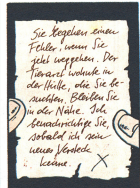 Sie begehen einen
Fehler, wenn Sie
jetzt weggehen. Der
Tierarzt wohnte in
der Hütte, die Sie be-
suchten. Bleiben Sie
in der Nähe. Ich
benachrichtige Sie,
sobald ich sein
neues Versteck
kenne.
X